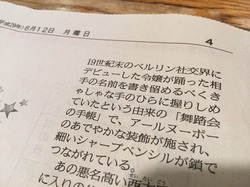 平成29年6月12日 月曜日
4
19世紀末のベルリン社交界に
デビューした令嬢が踊った相
手の名前を書き留めるべくき
ゃしゃな手のひらに握りしめ
ていたという由来の「舞踏会
の手帳」で、アールヌーボー
のあでやかな装飾が施され、
細いシャープペンシルが鎖で
つながれている。
あの悪名高い西太
に入りの